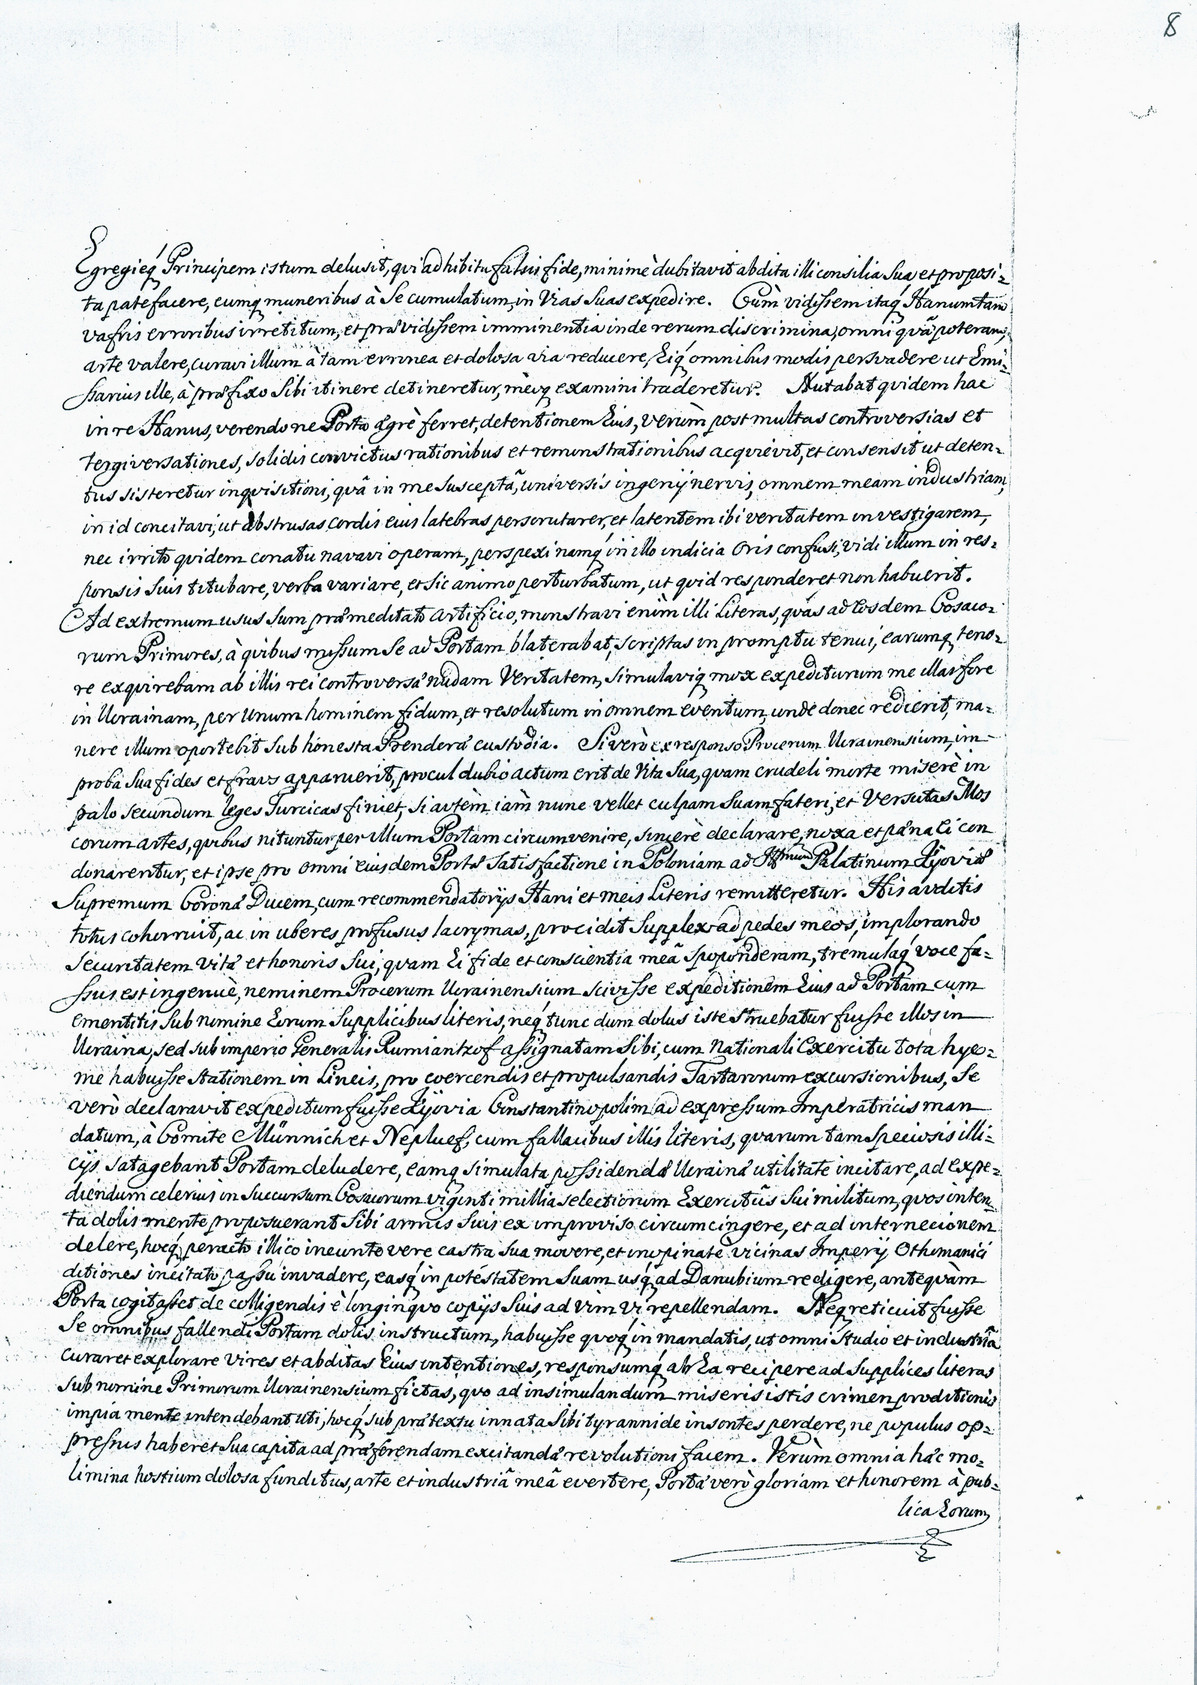 8
Egregieq́ Principem istum delusit, qui adhibitu falsis fide, minimè dubitavit abdita illi consilia sua et proposi-
ta patefacere, eumq muneribus à se cumulatum, in vias suas expedire. Cùm vidissem itaq́ Hanum tam
vafris erroribus irretitum, et prævidissem imminentia inde rerum discrimina, omni quâ poteram,
arte valere, curavi illum à tam erronea et dolosa via reducere, Eiq́ omnibus modis persvadere ut Emi-
ssarius ille, à præfixo sibi itinere detineretur, meoq examini traderetur. Nutabat quidem hac
in re Hanus, verendo ne Porta ægrè ferret, detentionem Eius, verùm post multas controversias et
tergiversationes, solidis convictus rationibus et remonstrationibus acquievit, et consensit ut deten-
tus sisteretur inquisitioni, quâ in me susceptâ, universis ingenij nervis, omnem meam industriam,
in id concitavi, ut abstrusas cordis eius latebras perscrutarer, et latentem ibi veritatem investigarem,
nec irrito quidem conatu navavi operam, perspexi namq́ in illo indicia oris confusi, vidi illum in res-
ponsis suis titubare, verba variare, et sic animo perturbatum, ut quid responderet non habuerit.
Ad extremum usus sum præmeditato artificio, monstravi enim illi Literas, quas ad eosdem Cosaco-
rum Primores, à quibus missum se ad Portam blaterabat, scriptas in promptu tenui, earumq teno-
re exquirebam ab illis rei controversæ nudam Veritatem, simulaviq mox expediturum me illas fore
in Ucrainam, per unum hominem fidum, et resolutum in omnem eventum, unde donec redierit, ma-
nere illum oportebit sub honesta Prenderæ custodia. Si verò ex responso Procerum Ucrainensium, im-
proba sua fides et fraus apparuerit, procul dubio actum erit de Vita sua, quam crudeli morte miserè in
palo secundum leges Turcicas finiet, si autèm iàm nunc vellet culpam suam fateri, et Versutas Mos
corum artes, quibus nituntur per illum Portam circumvenire, sincerè declarare, noxa et pæna ei con
donarentur, et ipse pro omni eiusdem Portæ satisfactione in Poloniam ad Illmum Palatinum Kijoviæ
Supremum Coronæ Ducem, cum recommendatorijs Hani et meis Literis remitteretur. His auditis
totus cohorruit, ac in uberes profusus lacrymas, procidit supplex ad pedes meos, implorando
securitatem vitæ et honoris sui, quam Ei fide et conscientia meâ spoponderam, tremulaq́ voce fa-
ssus est ingenuè, neminem Procerum Ucrainensium scivisse expeditionem Eius ad Portam cum
ementitis sub nomine Eorum supplicibus literis, neq́ tunc dum dolus iste struebatur fuisse illos in
Ucraina, sed sub imperio Generalis Rumiantzof assignatam sibi, cum Nationali Exercitu tota hye-
me habuisse stationem in Lineis, pro coercendis et propulsandis Tartarorum excursionibus, Se
verò declaravit expeditum fuisse Kijovia Constantinopolim ad expressum Imperatricis man
datum, à Comite Münnich et Nepluef, cum fallacibus illis literis, quarum tam speciosis illi-
cijs satagebant Portam deludere, eamq simulata possidendæ Ucrainæ utilitate incitare, ad expe-
diendum celerius in succursum Cosacorum viginti millia selectiorum Exercitûs sui militum, quos inten-
ta dolis mente proposuerant sibi armis suis ex improviso circumcingere, et ad internecionem
delere, hocq́ peracto illico ineunte vere castra sua movere, et inopinatè vicinas Imperij Othmanici
ditiones incitato passu invadere, easq́ in potestatem suam usq́ ad Danubium redigere, antequàm
Porta cogitasset de colligendis è longinquo copijs suis ad vim vi repellendam. Neq reticuit fuisse
se omnibus fallendi Portam dolis instructum, habuisse quoq́ in mandatis, ut omni studio et industriâ
curaret explorare vires et abditas Eius intentiones, responsumq́ ab Ea recipere ad supplices literas
sub nomine Primorum Ucrainensium fictas, quo ad insimulandum miseris istis crimen proditionis
impia mente intendebant uti, hocq́ sub prætextu innata sibi tyrannide insontes perdere, ne populus op-
pressus haberet sua capita ad præferendam excitandæ revolutioni facem. Verùm omnia hæc mo-
limina hostium dolosa funditus, arte et industriâ meâ evertere, Portæ verò gloriam et honorem à pub-
lica Eorum